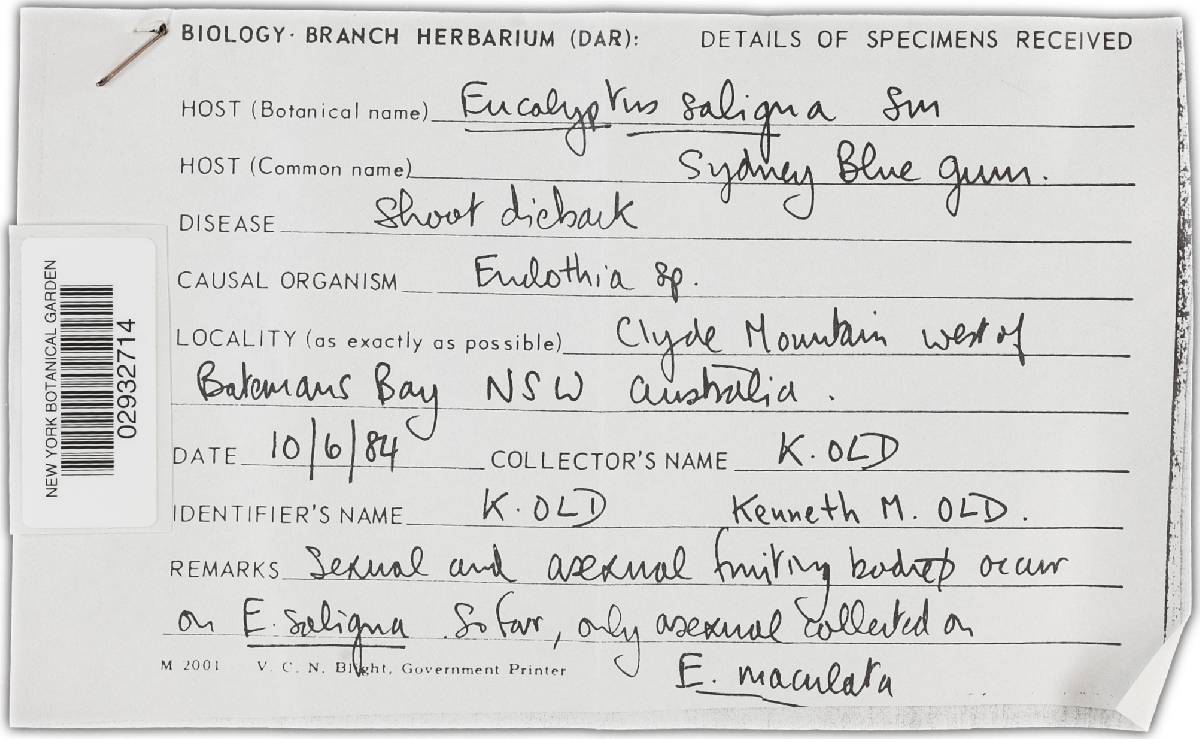 BIOLOGY· BRANCH HERBARIUM (DAR): DETAILS OF SPECIMENS RECEIVED
HOST (Botanical name) Eucalyptus saligna Sm
HOST (Common name) Sydney Blue gum.
DISEASE Shoot dieback
CAUSAL ORGANISM Endothia sp.
LOCALITY (as exactly as possible) Clyde Mountain west of
Batemans Bay NSW Australia.
DATE 10/6/84 COLLECTOR'S NAME K. OLD
IDENTIFIER'S NAME K. OLD Kenneth M. OLD.
REMARKS Sexual and asexual fruiting bodies occur
on E. saligna So far, only asexual collected on
E. maculata
M 2001 V. C. N. Blight, Government Printer
NEW YORK BOTANICAL GARDEN
02932714